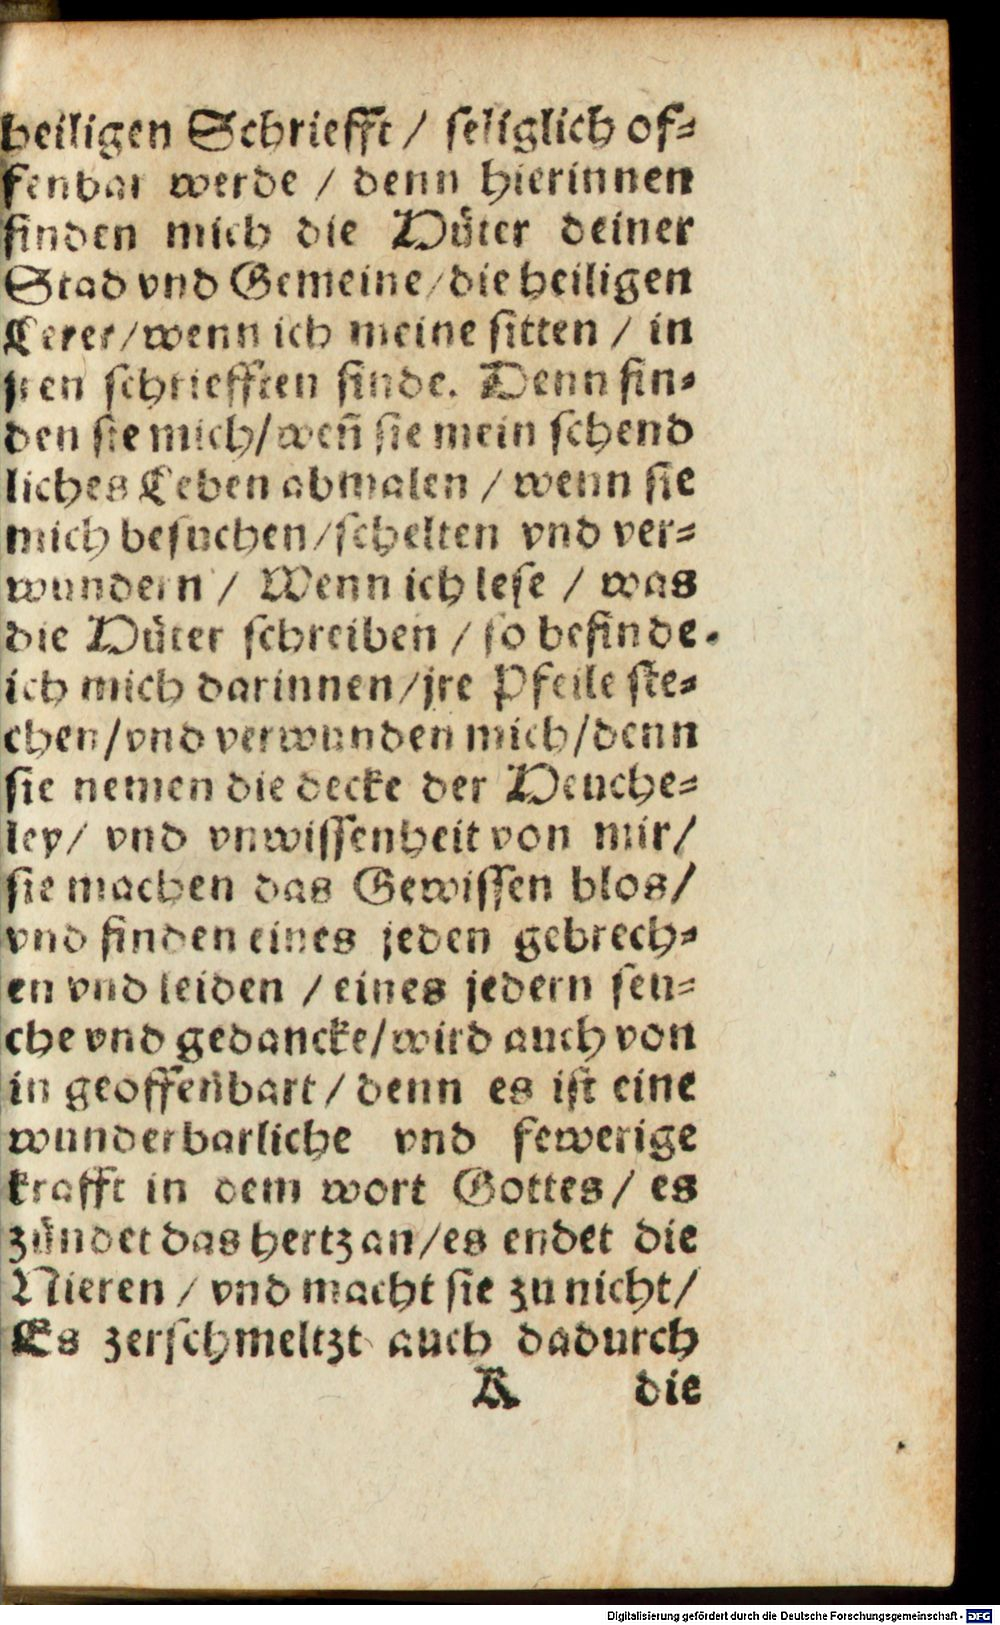 heiligen Schriefft / seliglich of⸗
fenbar werde / denn hierinnen
finden mich die Hüter deiner
Stad vnd Gemeine/die heiligen
Lerer/wenn ich meine sitten / in
jren schriefften finde. Denn fin⸗
den sie mich/wen̄ sie mein schend
liches Leben abmalen / wenn sie
mich besuchen/schelten vnd ver⸗
wundern / Wenn ich lese / was
die Hüter schreiben / so befinde
ich mich darinnen/jre Pfeile ste⸗
chen/vnd verwunden mich/denn
sie nemen die decke der Heuche⸗
ley/ vnd vnwissenheit von mir/
sie machen das Gewissen blos/
vnd finden eines jeden gebrech⸗
en vnd leiden / eines jedern seu⸗
che vnd gedancke/wird auch von
in geoffenbart / denn es ist eine
wunderbarliche vnd fewerige
krafft in dem wort Gottes/ es
zündet das hertz an/es endet die
Nieren / vnd macht sie zu nicht/
Es zerschmeltzt auch dadurch
K die
Digitalisierung gefördert durch die Deutsche Forschungsgemeinschaft - DFG